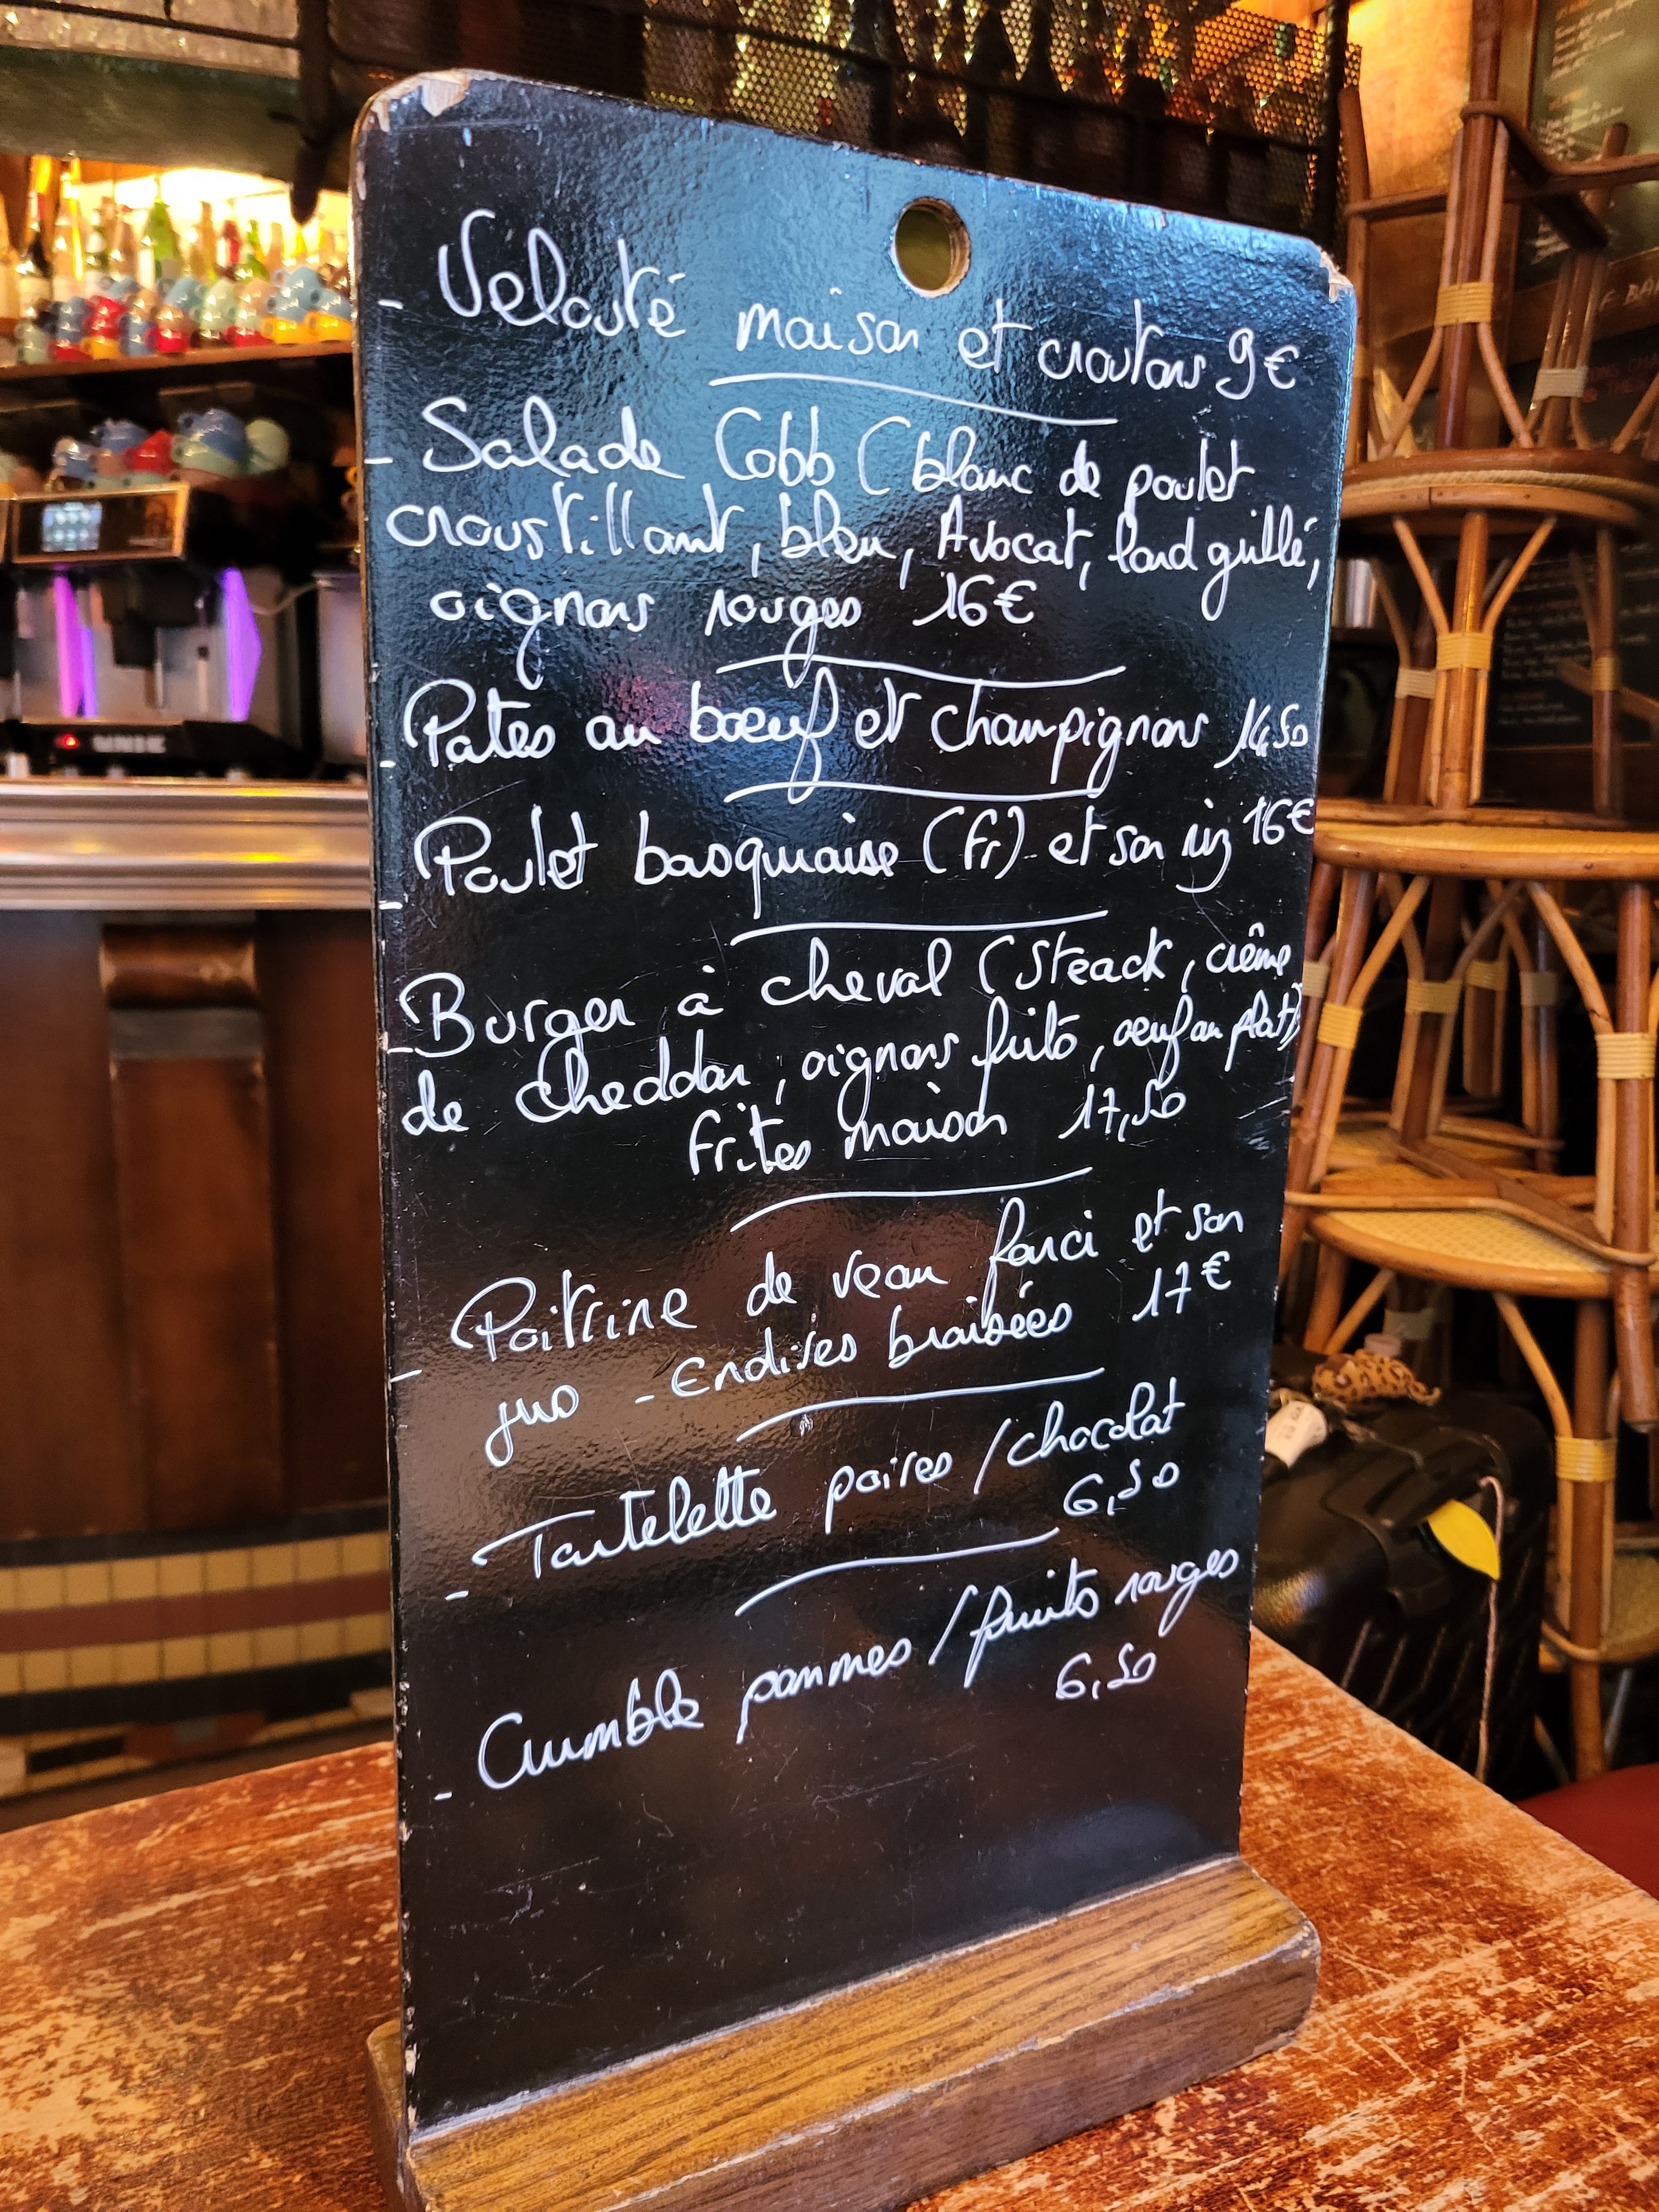 - Velouté maison et croutons 9€
- Salade Cobb (blanc de poulet
croustillant, bleu, Avocat, lard grillé,
oignons rouges 16€
- Pates au boeuf et champignons 14,50
- Poulet basquaise (fr) et son riz 16€
- Burger à cheval (Steack, crême
de cheddar, oignons frits, oeuf au plat)
frites maison 17,50
- Poitrine de veau farci et son
jus - Endives braisées 17€
- Tartelette poires / chocolat
6,50
- Crumble pommes / fruits rouges
6,50
UNIC